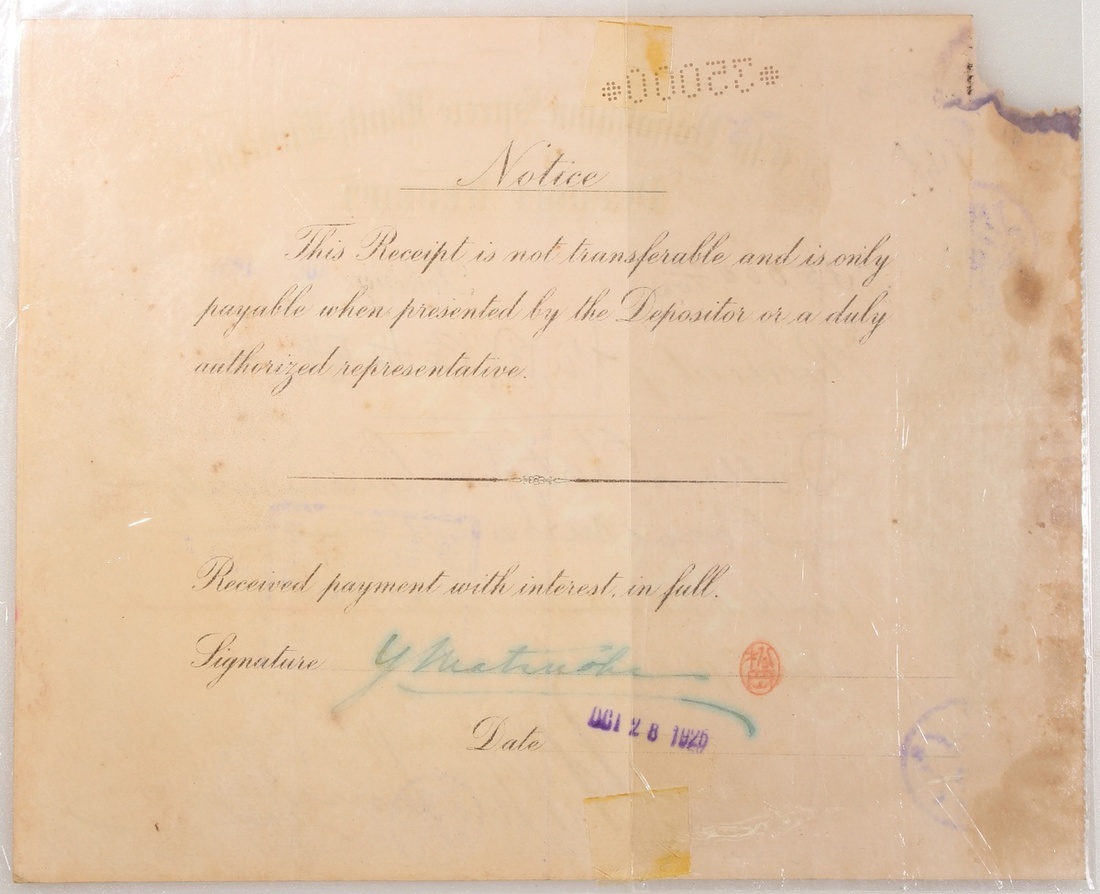 Notice
This Receipt is not transferable and is only
payable when presented by the Depositor or a duly
authorized representative.
Received payment with interest, in full.
Signature
Date OCT 28 1926